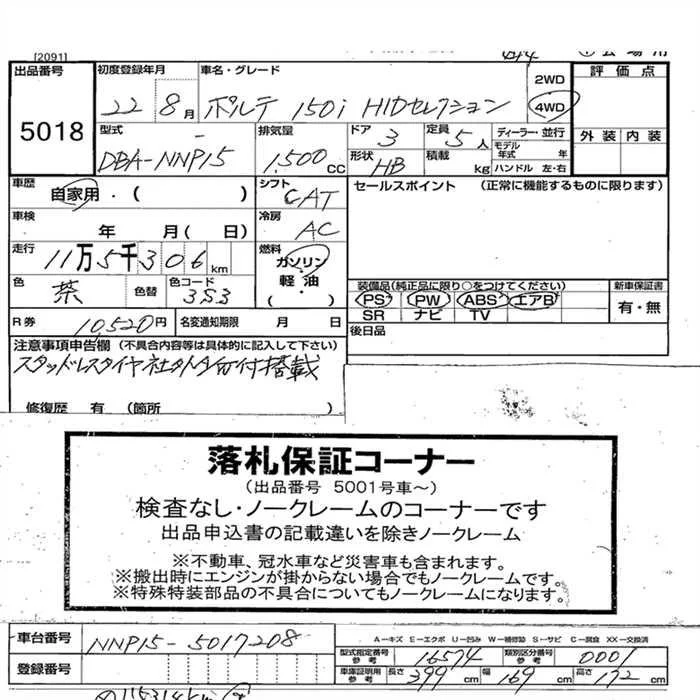 [2091]
出品番号 5018
初度登録年月 22 8月
車名・グレード ポルテ 150i HIDセレクション
2WD
4WD
評価点
外装 内装
型式 DBA-NNP15
排気量 1,500 CC
ドア 3
定員 5人
ディーラー・並行
形状 HB
積載 kg
モデル年式 年
ハンドル 左・右
車歴 自家用・( )
シフト CAT
セールスポイント (正常に機能するものに限ります)
車検 年 月( 日)
冷房 AC
走行 11万5千306km
燃料 ガソリン・軽油 ( )
色 茶 色替
色コード 3S3
装備品(純正品に限り○をつけてください)
PS PW ABS エアB
SR ナビ TV
新車保証書
有・無
R券 10,520円
名変通知期限 月 日
後日品
注意事項申告欄 (不具合内容等は具体的に記入して下さい)
スタッドレスタイヤ社外 付搭載
修復歴 有 (箇所 )
落札保証コーナー
(出品番号 5001号車～)
検査なし・ノークレームのコーナーです
出品申込書の記載違いを除きノークレーム
※不動車、冠水車など災害車も含まれます。
※搬出時にエンジンが掛からない場合でもノークレームです。
※特殊特装部品の不具合についてもノークレームになります。
車台番号 NNP15-5017208
A-キズ E-エクボ U-凹み W-補修跡 S-サビ C-腐食 XX-交換済
型式指定番号 参考 16574
類別区分番号 参考 0001
登録番号
車庫証明用 参考 長さ 399 cm 幅 169 cm 高さ 172 cm